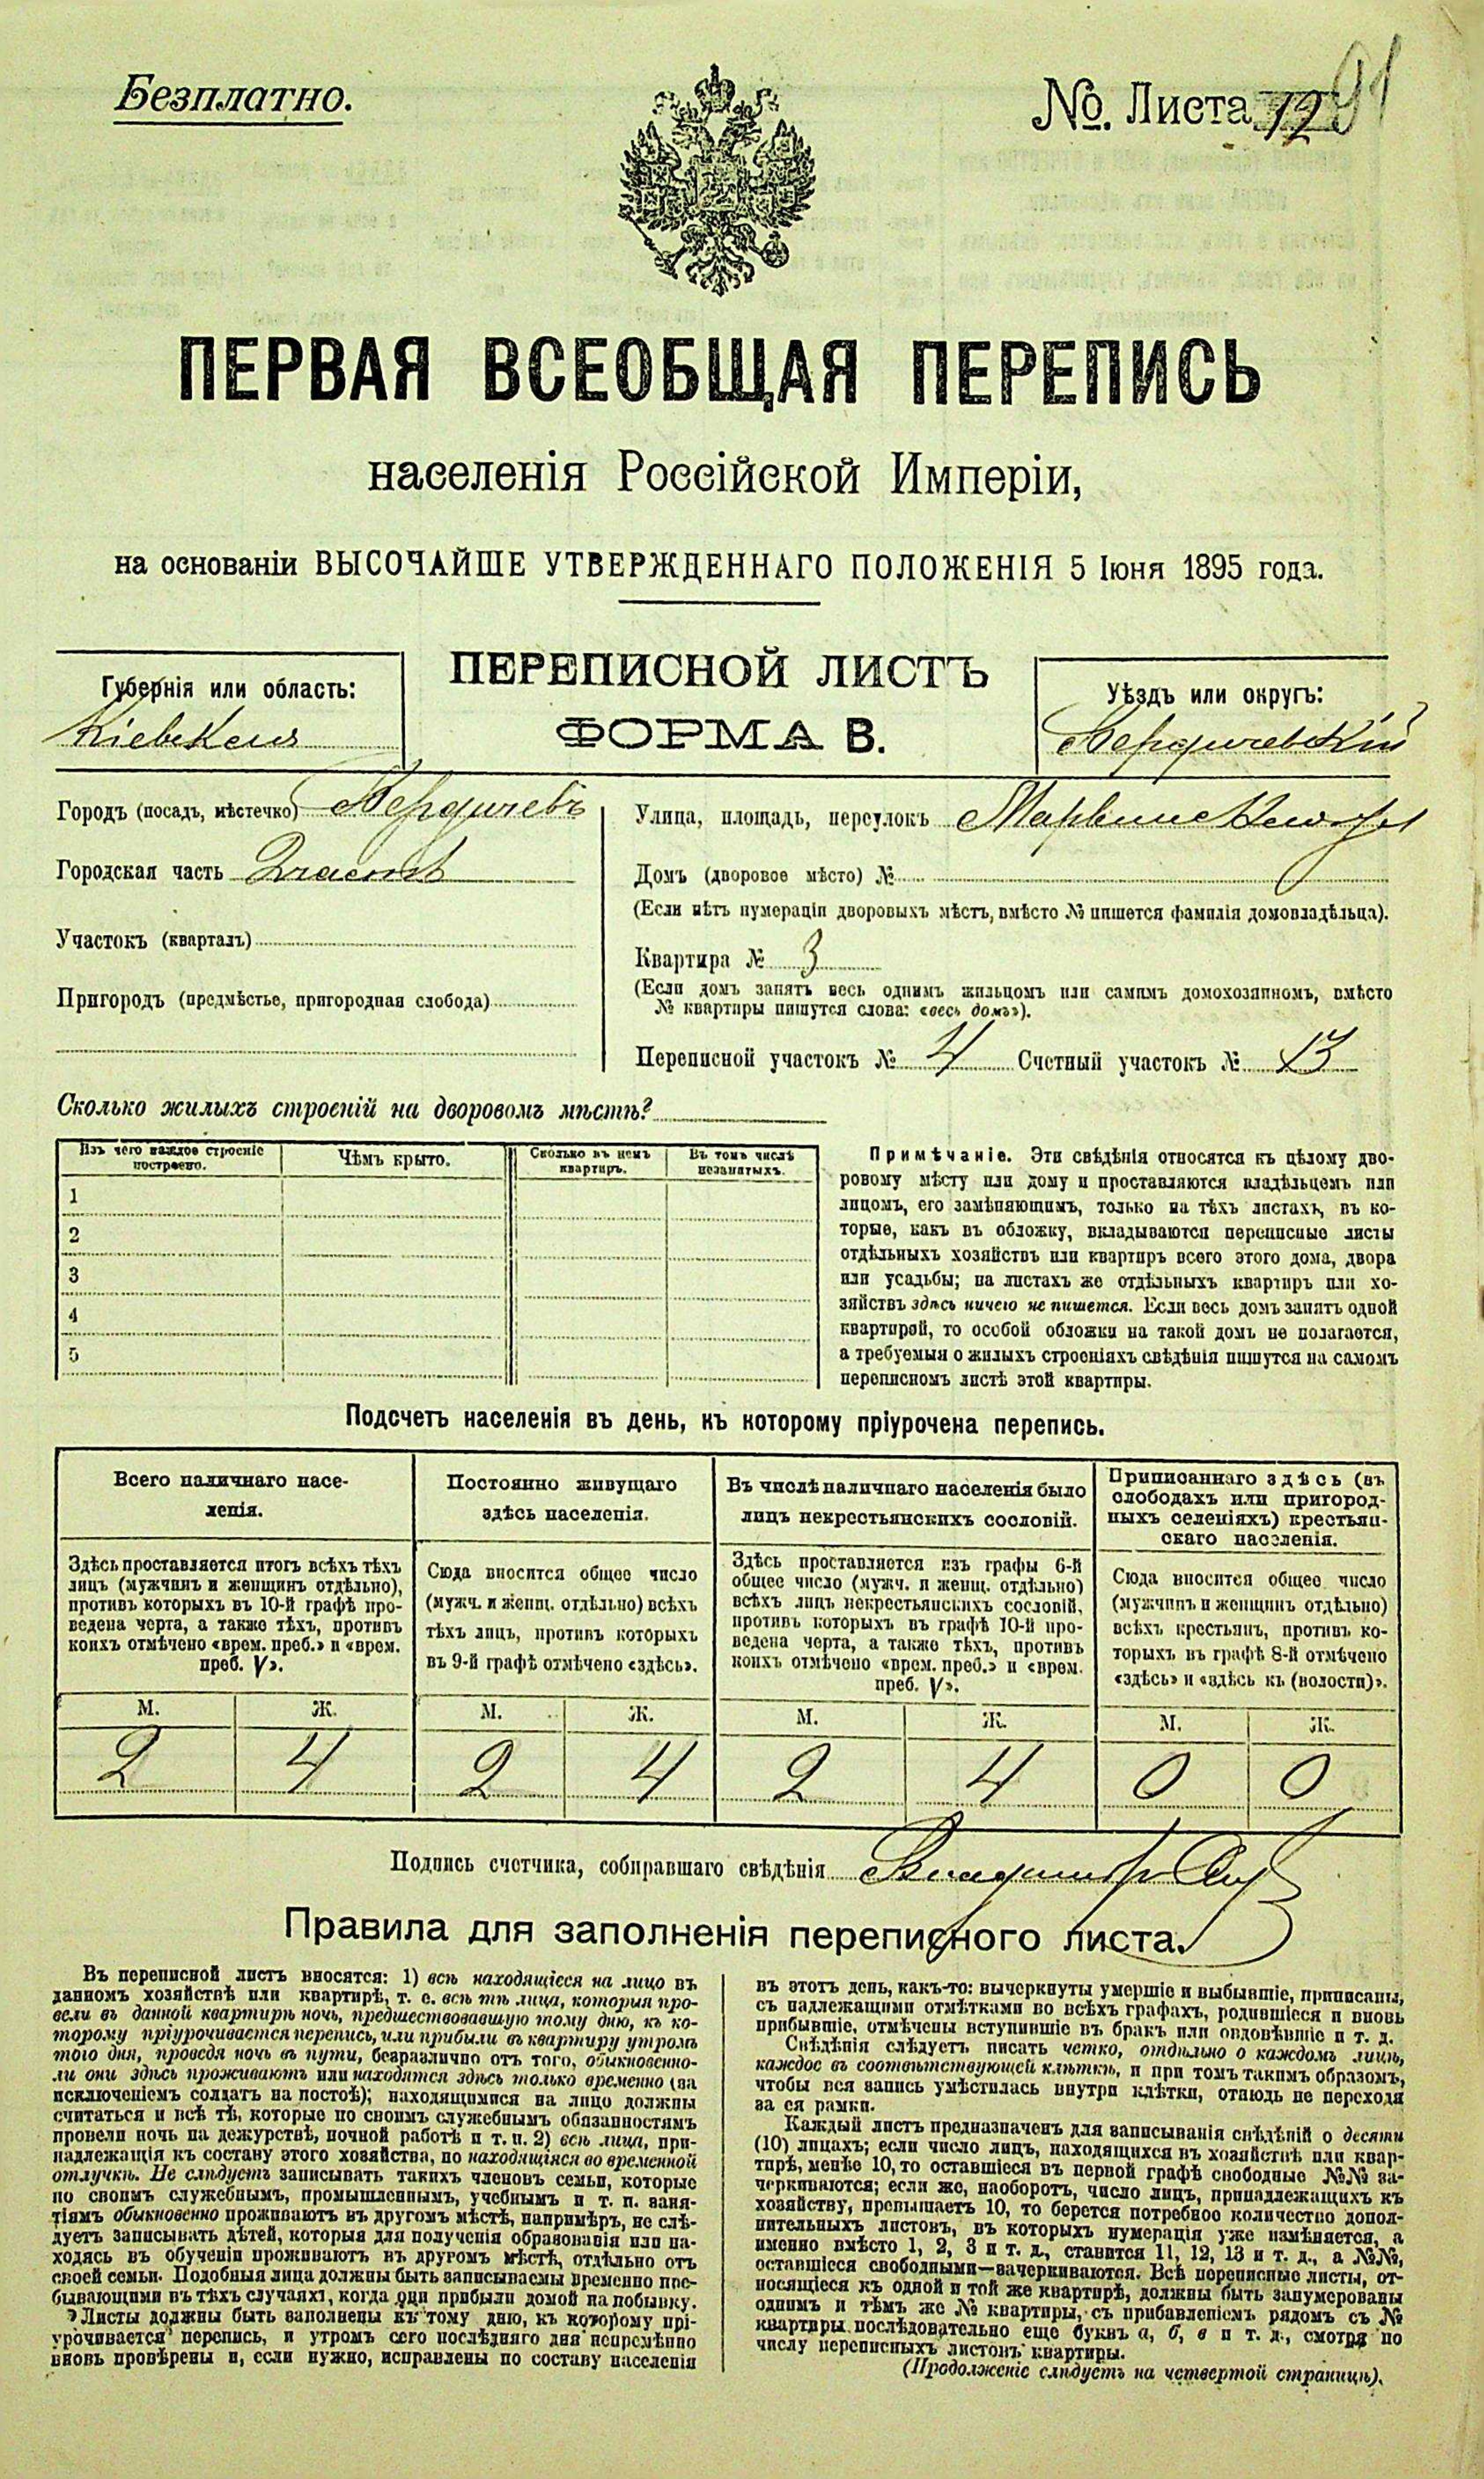 Безплатно.
№. Листа 12 91
ПЕРВАЯ ВСЕОБЩАЯ ПЕРЕПИСЬ
населенія Россійской Имперіи,
на основаніи ВЫСОЧАЙШЕ УТВЕРЖДЕННАГО ПОЛОЖЕНІЯ 5 Іюня 1895 года.
ПЕРЕПИСНОЙ ЛИСТЪ
ФОРМА В.
Губернія или область:
Кіевская
Уѣздъ или округъ:
Бердичевскій
Городъ (посадъ, мѣстечко) Бердичевъ
Городская часть 2 часть
Участокъ (кварталъ)
Пригородъ (предмѣстье, пригородная слобода)
Улица, площадь, переулокъ
Домъ (дворовое мѣсто) №
(Если нѣтъ нумераціи дворовыхъ мѣстъ, вмѣсто № пишется фамилія домовладѣльца).
Квартира № 3
(Если домъ занятъ весь однимъ жильцомъ или самимъ домохозяиномъ, вмѣсто
№ квартиры пишутся слова: «весь домъ»).
Переписной участокъ № 4 Счетный участокъ № 13
Сколько жилыхъ строеній на дворовомъ мѣстѣ?
Изъ чего каждое строеніе построено.
Чѣмъ крыто.
Сколько въ немъ квартиръ.
Въ томъ числѣ незанятыхъ.
1
2
3
4
5
Примѣчаніе. Эти свѣдѣнія относятся къ цѣлому дво-
ровому мѣсту или дому и проставляются владѣльцемъ или
лицомъ, его замѣняющимъ, только на тѣхъ листахъ, въ ко-
торые, какъ въ обложку, вкладываются переписные листы
отдѣльныхъ хозяйствъ или квартиръ всего этого дома, двора
или усадьбы; на листахъ же отдѣльныхъ квартиръ или хо-
зяйствъ здѣсь ничего не пишется. Если весь домъ занятъ одной
квартирой, то особой обложки на такой домъ не полагается,
а требуемыя о жилыхъ строеніяхъ свѣдѣнія пишутся на самомъ
переписномъ листѣ этой квартиры.
Подсчетъ населенія въ день, къ которому пріурочена перепись.
Всего наличнаго насе-
ленія.
Здѣсь проставляется итогъ всѣхъ тѣхъ
лицъ (мужчинъ и женщинъ отдѣльно),
противъ которыхъ въ 10-й графѣ про-
ведена черта, а также тѣхъ, противъ
коихъ отмѣчено «врем. преб.» и «врем.
преб. V».
Постоянно живущаго
здѣсь населенія.
Сюда вносится общее число
(мужч. и женщ. отдѣльно) всѣхъ
тѣхъ лицъ, противъ которыхъ
въ 9-й графѣ отмѣчено «здѣсь».
Въ числѣ наличнаго населенія было
лицъ некрестьянскихъ сословій.
Здѣсь проставляется изъ графы 6-й
общее число (мужч. и женщ. отдѣльно)
всѣхъ лицъ некрестьянскихъ сословій,
противъ которыхъ въ графѣ 10-й про-
ведена черта, а также тѣхъ, противъ
коихъ отмѣчено «врем. преб.» и «врем.
преб. V».
Приписаннаго здѣсь (въ
слободахъ или пригород-
ныхъ селеніяхъ) крестьян-
скаго населенія.
Сюда вносится общее число
(мужчинъ и женщинъ отдѣльно)
всѣхъ крестьянъ, противъ ко-
торыхъ въ графѣ 8-й отмѣчено
«здѣсь» и «здѣсь къ (волости)».
М. Ж. М. Ж. М. Ж. М. Ж.
2 4 2 4 2 4 0 0
Подпись счетчика, собиравшаго свѣдѣнія Владиміръ
Правила для заполненія переписного листа.
Въ переписной листъ вносятся: 1) всѣ находящіеся на лицо въ
данномъ хозяйствѣ или квартирѣ, т. е. всѣ тѣ лица, которыя про-
вели въ данной квартирѣ ночь, предшествовавшую тому дню, къ ко-
торому пріурочивается перепись, или прибыли въ квартиру утромъ
того дня, проведя ночь въ пути, безразлично отъ того, обыкновенно-
ли они здѣсь проживаютъ или находятся здѣсь только временно (за
исключеніемъ солдатъ на постоѣ); находящимися на лицо должны
считаться и всѣ тѣ, которые по своимъ служебнымъ обязанностямъ
провели ночь на дежурствѣ, ночной работѣ и т. п. 2) всѣ лица, при-
надлежащія къ составу этого хозяйства, но находящіяся во временной
отлучкѣ. Не слѣдуетъ записывать такихъ членовъ семьи, которые
по своимъ служебнымъ, промышленнымъ, учебнымъ и т. п. заня-
тіямъ обыкновенно проживаютъ въ другомъ мѣстѣ, напримѣръ, не слѣ-
дуетъ записывать дѣтей, которыя для полученія образованія или на-
ходясь въ обученіи проживаютъ въ другомъ мѣстѣ, отдѣльно отъ
своей семьи. Подобныя лица должны быть записываемы временно пре-
бывающими въ тѣхъ случаяхъ, когда они прибыли домой на побывку.
Листы должны быть заполнены къ тому дню, къ которому прі-
урочивается перепись, и утромъ сего послѣдняго дня непремѣнно
вновь провѣрены и, если нужно, исправлены по составу населенія
въ этотъ день, какъ-то: вычеркнуты умершіе и выбывшіе, приписаны,
съ надлежащими отмѣтками во всѣхъ графахъ, родившіеся и вновь
прибывшіе, отмѣчены вступившіе въ бракъ или овдовѣвшіе и т. д.
Свѣдѣнія слѣдуетъ писать четко, отдѣльно о каждомъ лицѣ,
каждое въ соотвѣтствующей клѣткѣ, и при томъ такимъ образомъ,
чтобы вся запись умѣстилась внутри клѣтки, отнюдь не переходя
за ея рамки.
Каждый листъ предназначенъ для записыванія свѣдѣній о десяти
(10) лицахъ; если число лицъ, находящихся въ хозяйствѣ или квар-
тирѣ, менѣе 10, то оставшіеся въ первой графѣ свободные №№ за-
черкиваются; если же, наоборотъ, число лицъ, принадлежащихъ къ
хозяйству, превышаетъ 10, то берется потребное количество допол-
нительныхъ листовъ, въ которыхъ нумерація уже измѣняется, а
именно вмѣсто 1, 2, 3 и т. д., ставится 11, 12, 13 и т. д., а №№,
оставшіеся свободными—зачеркиваются. Всѣ переписные листы, от-
носящіеся къ одной и той же квартирѣ, должны быть занумерованы
однимъ и тѣмъ же № квартиры, съ прибавленіемъ рядомъ съ №
квартиры последовательно еще буквъ а, б, в и т. д., смотря по
числу переписныхъ листовъ квартиры.
(Продолженіе слѣдуетъ на четвертой страницѣ).